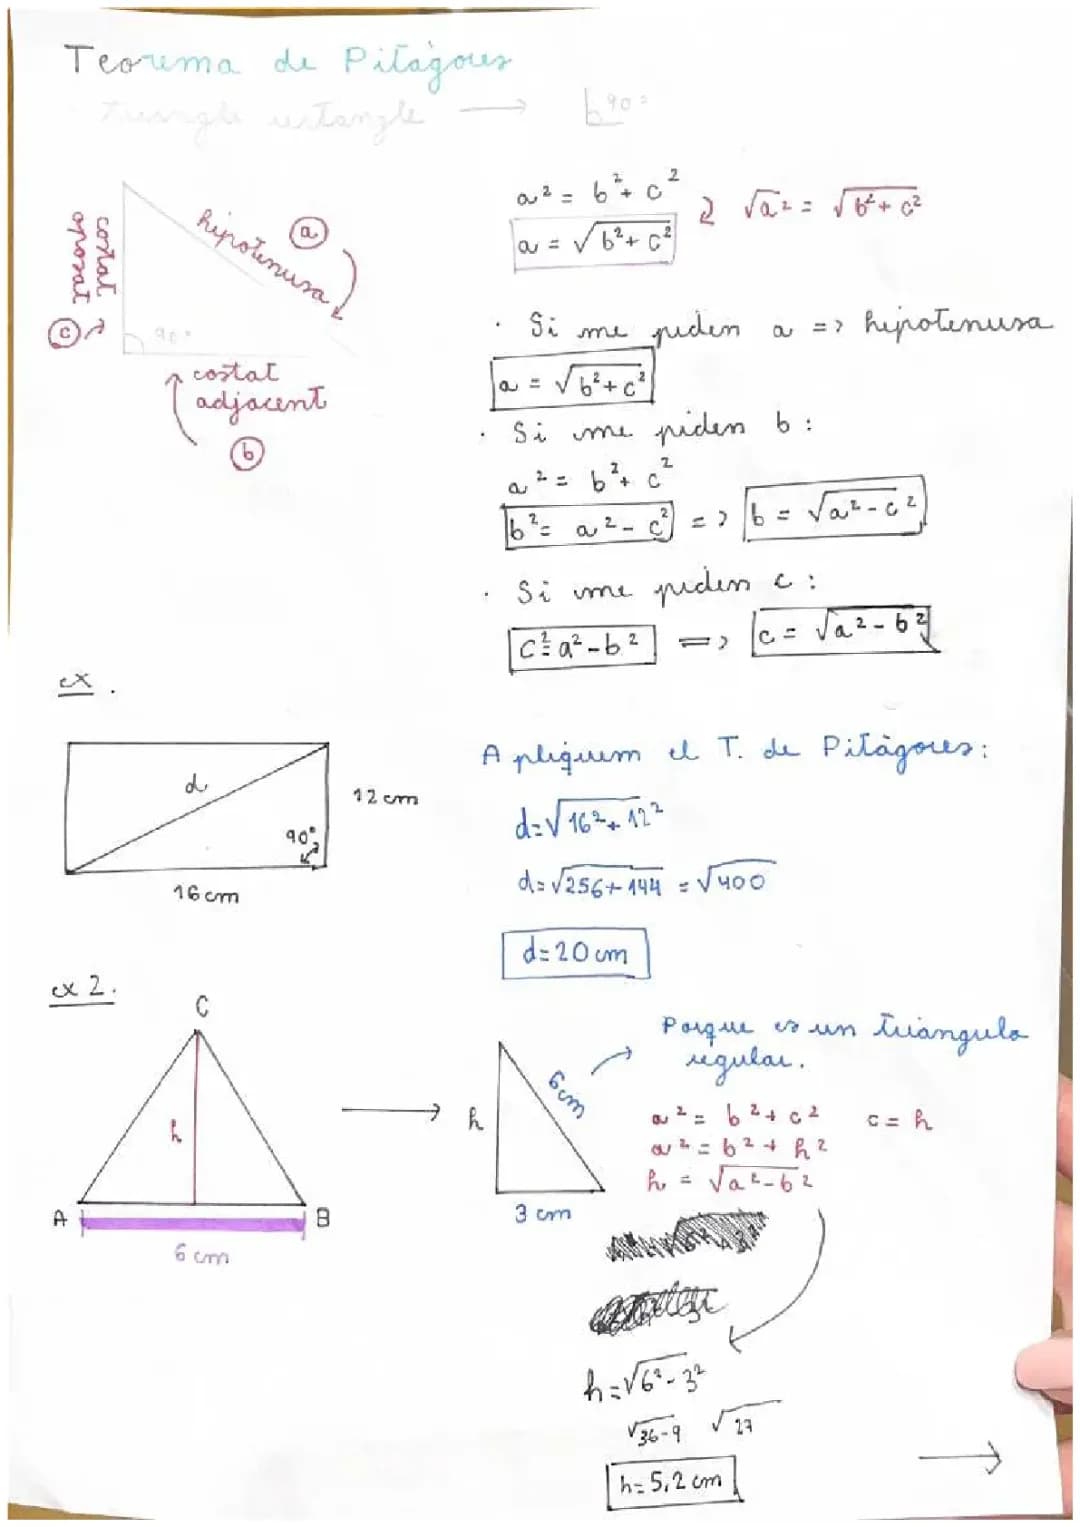 Teorema de Pitàgores
triangle rectangle → 90º
a² = b² + c²
√a² = √b² + c²
a = √b² + c²
hipotenusa
a
costat oposat
c
90º
costat adjacent
b
· Si me piden a => hipotenusa
a = √b² + c²
· Si me piden b :
a² = b² + c²
b² = a² - c² => b = √a² - c²
· Si me piden c :
c² = a² - b² => c = √a² - b²
ex.
d
12 cm
90º
16 cm
Apliquem el T. de Pitàgores:
d = √16² + 12²
d = √256 + 144 = √400
d = 20 cm
ex 2.
C
h
A
B
6 cm
h
6 cm
3 cm
Porque es un triangulo
regular.
a² = b² + c² c = h
a² = b² + h²
h = √a² - b²
h = √6² - 3²
√36 - 9 √27
h = 5,2 cm